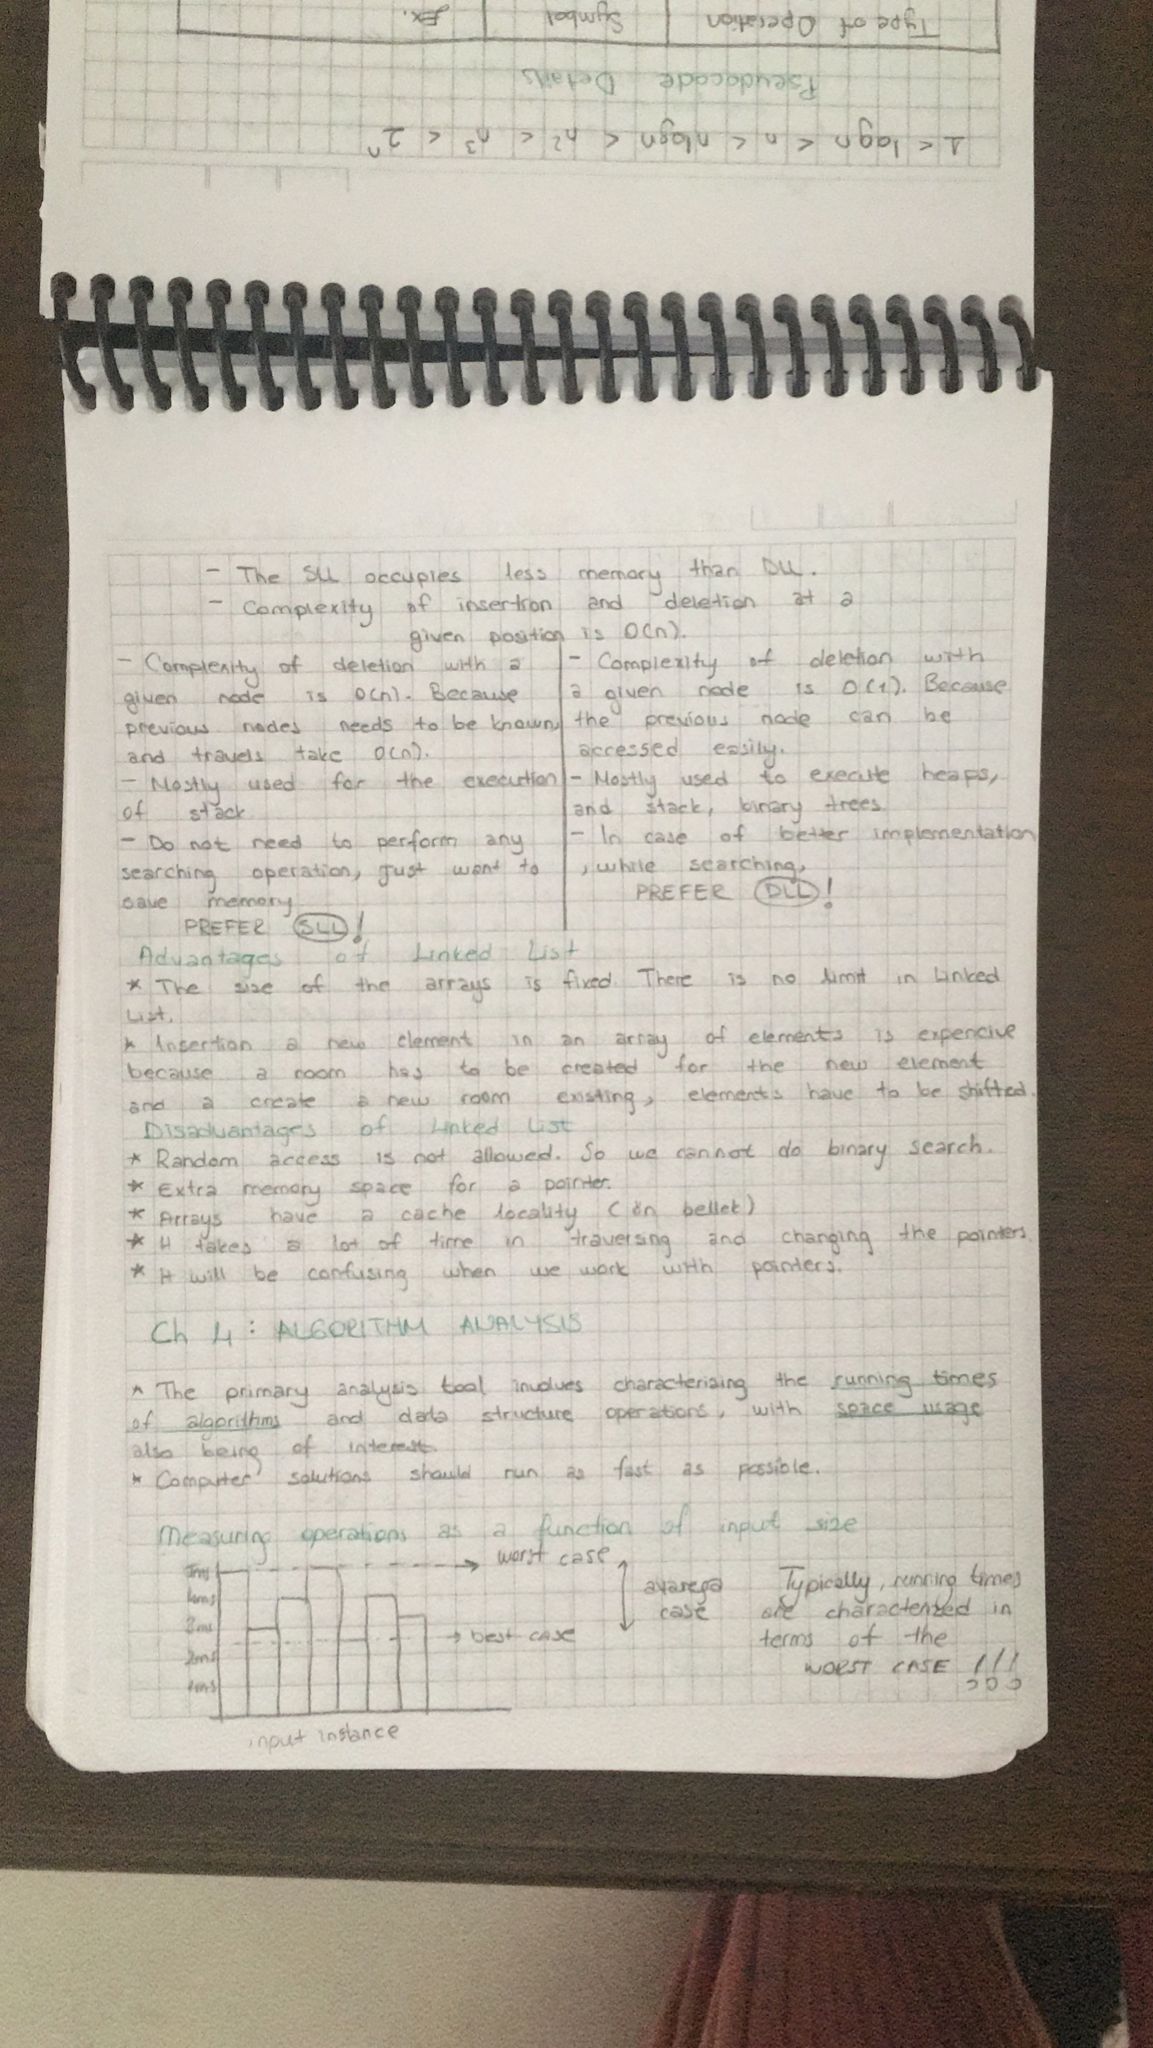 1 < logn < n < nlogn < n² < n³ < 2ⁿ
Pseudocode Details
Type of Operation Symbol Ex.
- The SLL occupies less memory than DLL.
- Complexity of insertion and deletion at a
given position is O(n).
- Complexity of deletion with a
given node is O(n). Because
previous nodes needs to be known,
and travels take O(n).
- Mostly used for the execution
of stack
- Do not need to perform any
searching operation, just want to
save memory
PREFER SLL!
- Complexity of deletion with
a given node is O(1). Because
the previous node can be
accessed easily.
- Mostly used to execute heaps,
and stack, binary trees.
- In case of better implementation
, while searching,
PREFER DLL!
Advantages of Linked List
* The size of the arrays is fixed. There is no limit in Linked
List.
* Insertion a new element in an array of elements is expencive
because a room has to be created for the new element
and a create a new room existing, elements have to be shifted.
Disadvantages of Linked List
* Random access is not allowed. So we cannot do binary search.
* Extra memory space for a pointer.
* Arrays have a cache locality (ön bellek)
* It takes a lot of time in traversing and changing the pointers
* It will be confusing when we work with pointers.
Ch 4: ALGORITHM ANALYSIS
* The primary analysis tool involves characterizing the running times
of algorithms and data structure operations, with space usage
also being of interest.
* Computer solutions should run as fast as possible.
Measuring operations as a function of input size
5ms
4ms
3ms
2ms
1ms
worst case
best case
avarega
case
input instance
Typically, running times
are characterized in
terms of the
WORST CASE !!!